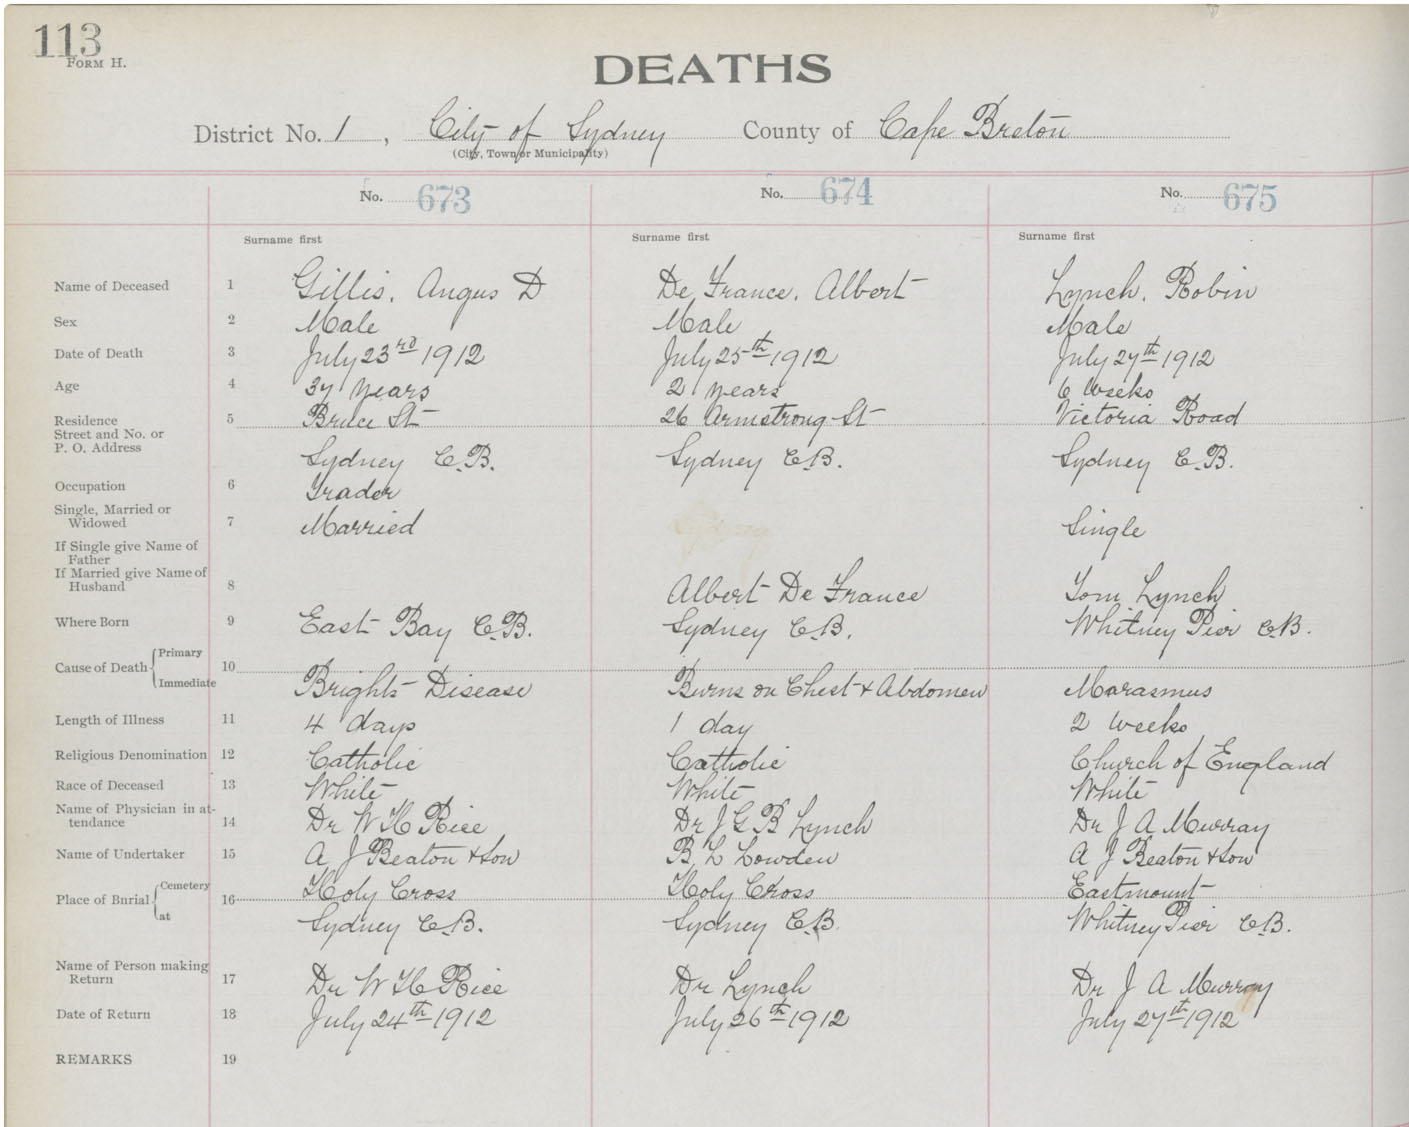 113
FORM H.
DEATHS
District No. 1, City of Sydney County of Cape Breton
(City, Town or Municipality)
No. 673 No. 674 No. 675
Surname first Surname first Surname first
Name of Deceased 1 Gillis, Angus D De France, Albert Lynch, Robin
Sex 2 Male Male Male
Date of Death 3 July 23rd 1912 July 25th 1912 July 27th 1912
Age 4 37 years 2 years 6 weeks
Residence 5 Bruce St 26 Armstrong St Victoria Road
Street and No. or
P. O. Address Sydney C.B. Sydney C.B. Sydney C.B.
Occupation 6 Trader
Single, Married or
Widowed 7 Married Single
If Single give Name of
Father
If Married give Name of
Husband 8 Albert De France Tom Lynch
Where Born 9 East Bay C.B. Sydney C.B. Whitney Pier C.B.
Primary
Cause of Death 10
Immediate Brights Disease Burns on Chest + Abdomen Marasmus
Length of Illness 11 4 days 1 day 2 weeks
Religious Denomination 12 Catholic Catholic Church of England
Race of Deceased 13 White White White
Name of Physician in at-
tendance 14 Dr W H Rice Dr J G B Lynch Dr J A Murray
Name of Undertaker 15 A J Beaton + Son B L Lowden A J Beaton + Son
Cemetery Holy Cross Holy Cross Eastmount
Place of Burial 16
at Sydney C.B. Sydney C.B Whitney Pier C.B.
Name of Person making
Return 17 Dr W H Rice Dr Lynch Dr J A Murray
Date of Return 18 July 24th 1912 July 26th 1912 July 27th 1912
REMARKS 19